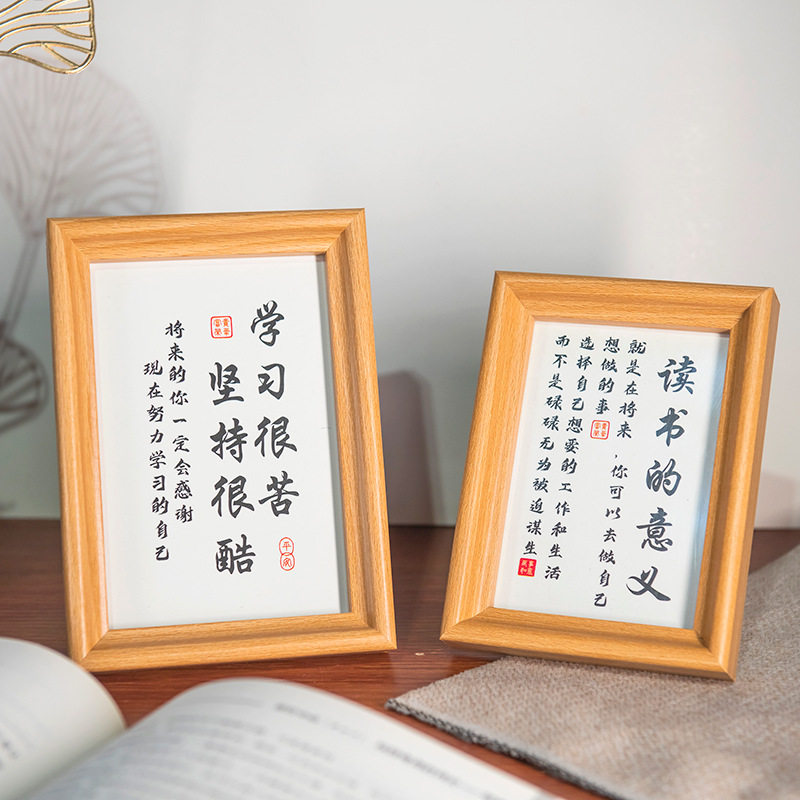 学习很苦
坚持很酷
平安
将来的你一定会感谢
现在努力学习的自己
读书的意义
就是在将来,你可以去做自己
想做的事
选择自己想要的工作和生活
而不是碌碌无为被迫谋生